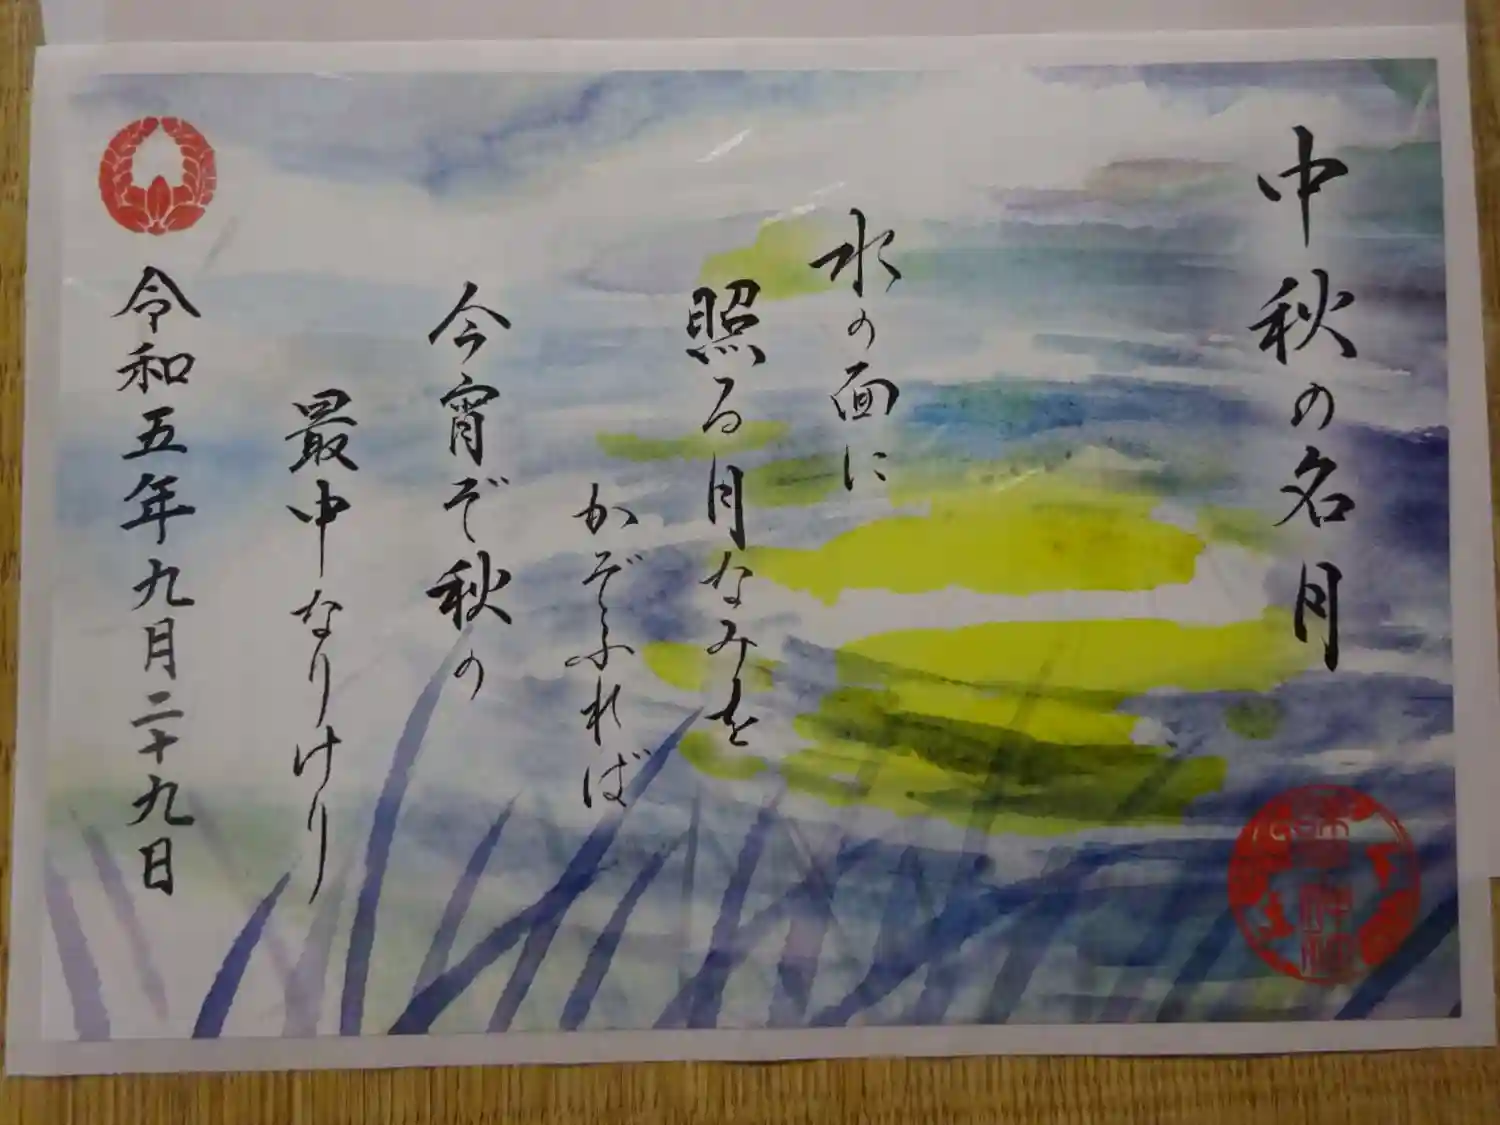 中秋の名月
水の面に
照る月なみを
かぞふれば
今宵ぞ秋の
最中なりけり
令和五年九月二十九日